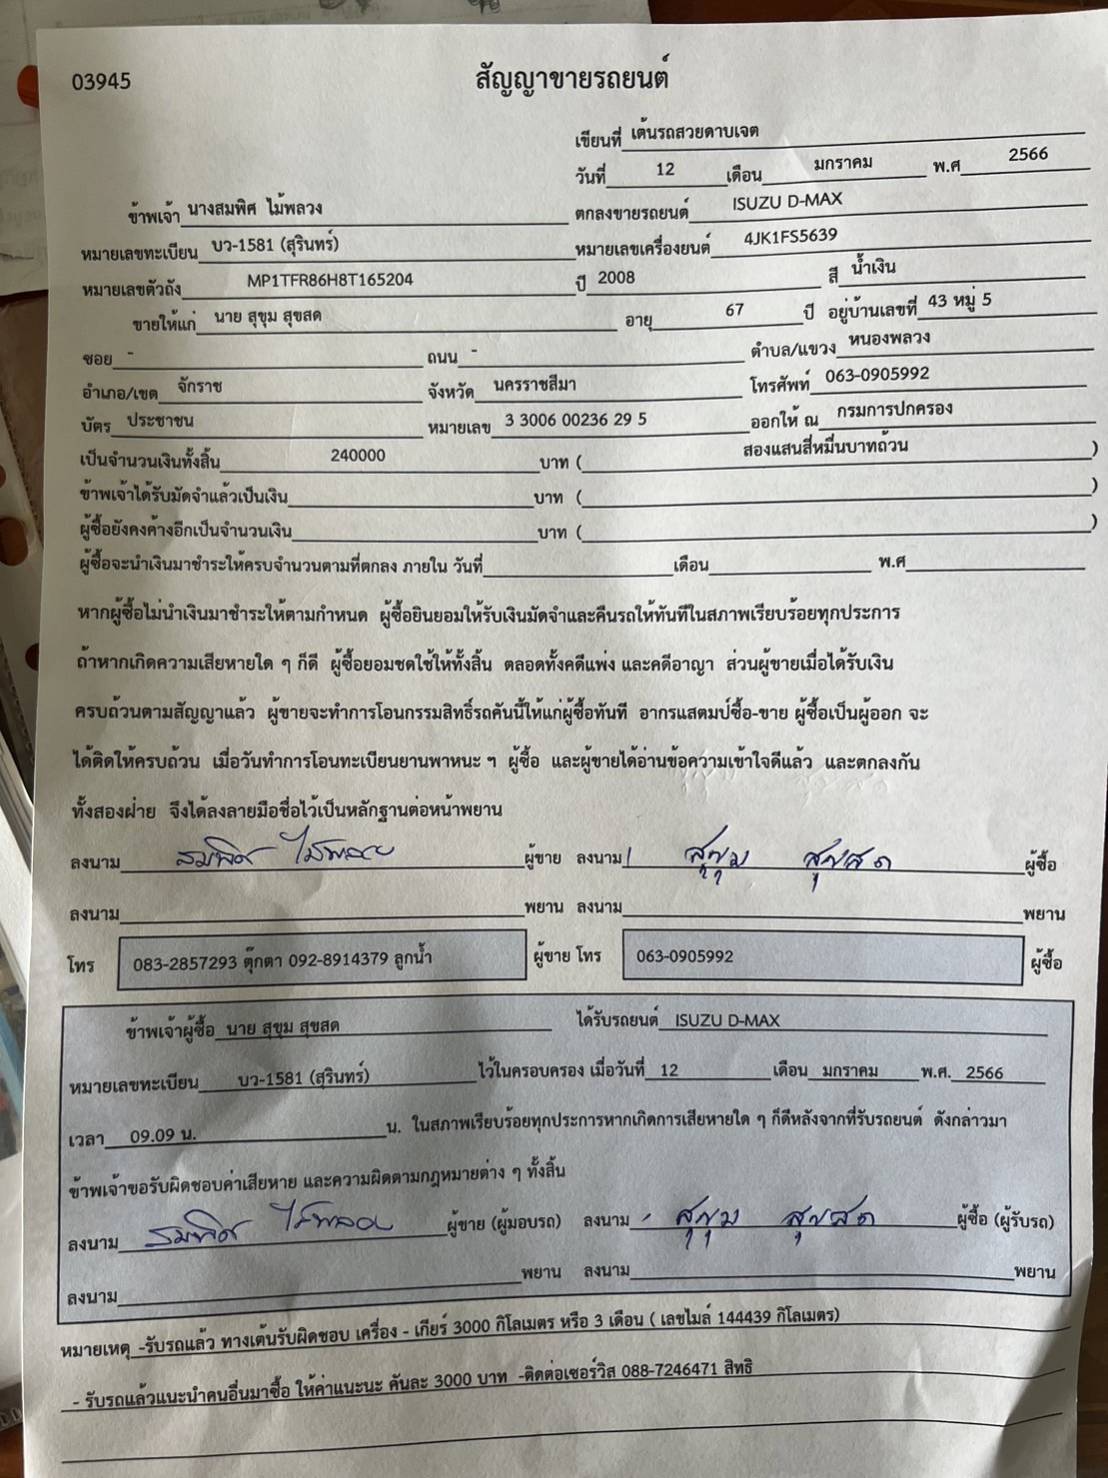 03945
สัญญาขายรถยนต์
เขียนที่ เต้นรถสวยดาบเจต
วันที่ 12 เดือน มกราคม พ.ศ 2566
ข้าพเจ้า นางสมพิศ ไม้พลวง ตกลงขายรถยนต์ ISUZU D-MAX
หมายเลขทะเบียน บว-1581 (สุรินทร์) หมายเลขเครื่องยนต์ 4JK1FS5639
หมายเลขตัวถัง MP1TFR86H8T165204 ปี 2008 สี น้ำเงิน
ขายให้แก่ นาย สุขุม สุขสด อายุ 67 ปี อยู่บ้านเลขที่ 43 หมู่ 5
ซอย - ถนน - ตำบล/แขวง หนองพลวง
อำเภอ/เขต จักราช จังหวัด นครราชสีมา โทรศัพท์ 063-0905992
บัตร ประชาชน หมายเลข 3 3006 00236 29 5 ออกให้ ณ กรมการปกครอง
เป็นจำนวนเงินทั้งสิ้น 240000 บาท ( สองแสนสี่หมื่นบาทถ้วน )
ข้าพเจ้าได้รับมัดจำแล้วเป็นเงิน บาท ( )
ผู้ซื้อยังคงค้างอีกเป็นจำนวนเงิน บาท ( )
ผู้ซื้อจะนำเงินมาชำระให้ครบจำนวนตามที่ตกลง ภายใน วันที่ เดือน พ.ศ
หากผู้ซื้อไม่นำเงินมาชำระให้ตามกำหนด ผู้ซื้อยินยอมให้รับเงินมัดจำและคืนรถให้ทันทีในสภาพเรียบร้อยทุกประการ
ถ้าหากเกิดความเสียหายใด ๆ ก็ดี ผู้ซื้อยอมชดใช้ให้ทั้งสิ้น ตลอดทั้งคดีแพ่ง และคดีอาญา ส่วนผู้ขายเมื่อได้รับเงิน
ครบถ้วนตามสัญญาแล้ว ผู้ขายจะทำการโอนกรรมสิทธิ์รถคันนี้ให้แก่ผู้ซื้อทันที อากรแสตมป์ซื้อ-ขาย ผู้ซื้อเป็นผู้ออก จะ
ได้ติดให้ครบถ้วน เมื่อวันทำการโอนทะเบียนยานพาหนะ ฯ ผู้ซื้อ และผู้ขายได้อ่านข้อความเข้าใจดีแล้ว และตกลงกัน
ทั้งสองฝ่าย จึงได้ลงลายมือชื่อไว้เป็นหลักฐานต่อหน้าพยาน
ลงนาม สมพิศ ไม้พลวง ผู้ขาย ลงนาม สุขุม สุขสด ผู้ซื้อ
ลงนาม พยาน ลงนาม พยาน
โทร 083-2857293 ตุ๊กตา 092-8914379 ลูกน้ำ ผู้ขาย โทร 063-0905992 ผู้ซื้อ
ข้าพเจ้าผู้ซื้อ นาย สุขุม สุขสด ได้รับรถยนต์ ISUZU D-MAX
หมายเลขทะเบียน บว-1581 (สุรินทร์) ไว้ในครอบครอง เมื่อวันที่ 12 เดือน มกราคม พ.ศ. 2566
เวลา 09.09 น. น. ในสภาพเรียบร้อยทุกประการหากเกิดการเสียหายใด ๆ ก็ดีหลังจากที่รับรถยนต์ ดังกล่าวมา
ข้าพเจ้าขอรับผิดชอบค่าเสียหาย และความผิดตามกฎหมายต่าง ๆ ทั้งสิ้น
ลงนาม สมพิศ ไม้พลวง ผู้ขาย (ผู้มอบรถ) ลงนาม สุขุม สุขสด ผู้ซื้อ (ผู้รับรถ)
ลงนาม พยาน ลงนาม พยาน
หมายเหตุ -รับรถแล้ว ทางเต้นรับผิดชอบ เครื่อง - เกียร์ 3000 กิโลเมตร หรือ 3 เดือน ( เลขไมล์ 144439 กิโลเมตร)
- รับรถแล้วแนะนำคนอื่นมาซื้อ ให้ค่าแนะนะ คันละ 3000 บาท -ติดต่อเซอร์วิส 088-7246471 สิทธิ